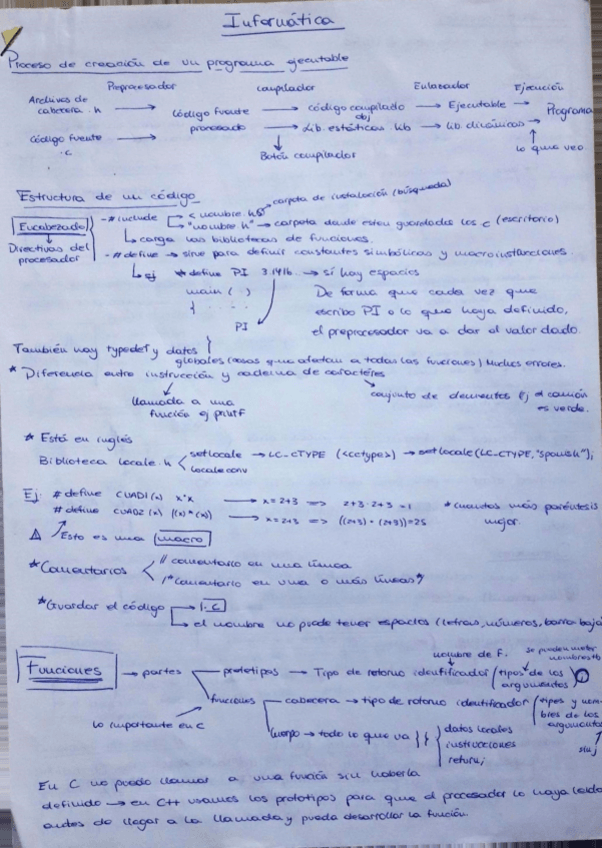 Informática
Proceso de creación de un programa ejecutable
Preprocesador compilador Enlazador Ejecución
Archivos de cabecera .h → código fuente procesado → código compilado obj → Ejecutable → Programa
código fuente .c → → Lib. estáticas .lib → lib. dinámicas →
↓ Botón compilador
↑ lo que veo
Estructura de un código
Encabezado - #include < nombre .h> → carpeta de instalación (búsqueda)
"nombre h" → carpeta donde esten guardados los c (escritorio)
↓ Directivas del procesador
↳ carga las bibliotecas de funciones.
- # define → sirve para definir constantes simbólicas y macroinstrucciones.
↳ ej # define PI 3.1416. → sí hay espacios
main ( )
{ . . .
PI
}
De forma que cada vez que
escribo PI o lo que haya definido,
el preprocesador va a dar el valor dado.
También hay typedef y datos
globales (cosas que afectan a todas las funciones) Muchos errores.
* Diferencia entre instrucción y cadena de caracteres
llamada a una
función ej printF
conjunto de elementos Ej el camión
es verde.
* Está en inglés
Biblioteca locale.h < setlocale → LC_CTYPE (<cctype>) → setlocale(LC_CTYPE, "spanish");
localeconv
Ej: # define CUAD1(x) x*x → x=2+3 => 2+3·2+3 = 1
# define CUAD2 (x) ((x)*(x)) → x=2+3 => ((2+3)·(2+3))=25
* cuantos más paréntesis
mejor.
⚠ Esto es una macro
* Comentarios < // comentario en una línea
/* Comentario en una o más líneas */
* Guardar el código → .c
↳ el nombre no puede tener espacios (letras, números, barra baja)
Funciones → partes
prototipos → Tipo de retorno identificador (tipos de los argumentos) ;
nombre de F.
se pueden meter
nombres tb
funciones
cabecera → tipo de retorno identificador (tipos y nombres de los argumentos)
sin ;
lo importante en C
Cuerpo → todo lo que va { } { datos locales
instrucciones
return;
En C no puedo llamar a una función sin haberla
definido → en C++ usamos los prototipos para que el procesador lo haya leído
antes de llegar a la llamada y pueda desarrollar la función.